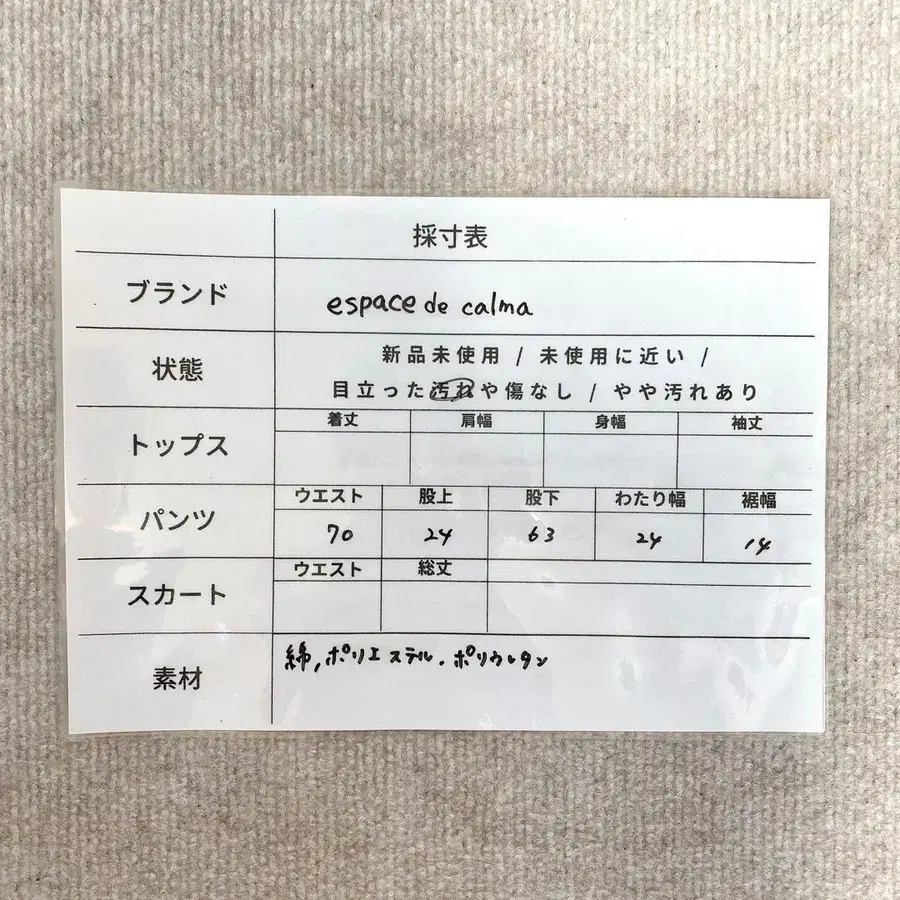 採寸表
ブランド
espace de calma
状態
新品未使用 / 未使用に近い /
目立った汚れや傷なし / やや汚れあり
トップス
着丈 肩幅 身幅 袖丈
パンツ
ウエスト 股上 股下 わたり幅 裾幅
70 24 63 24 14
スカート
ウエスト 総丈
素材
綿,ポリエステル.ポリウレタン